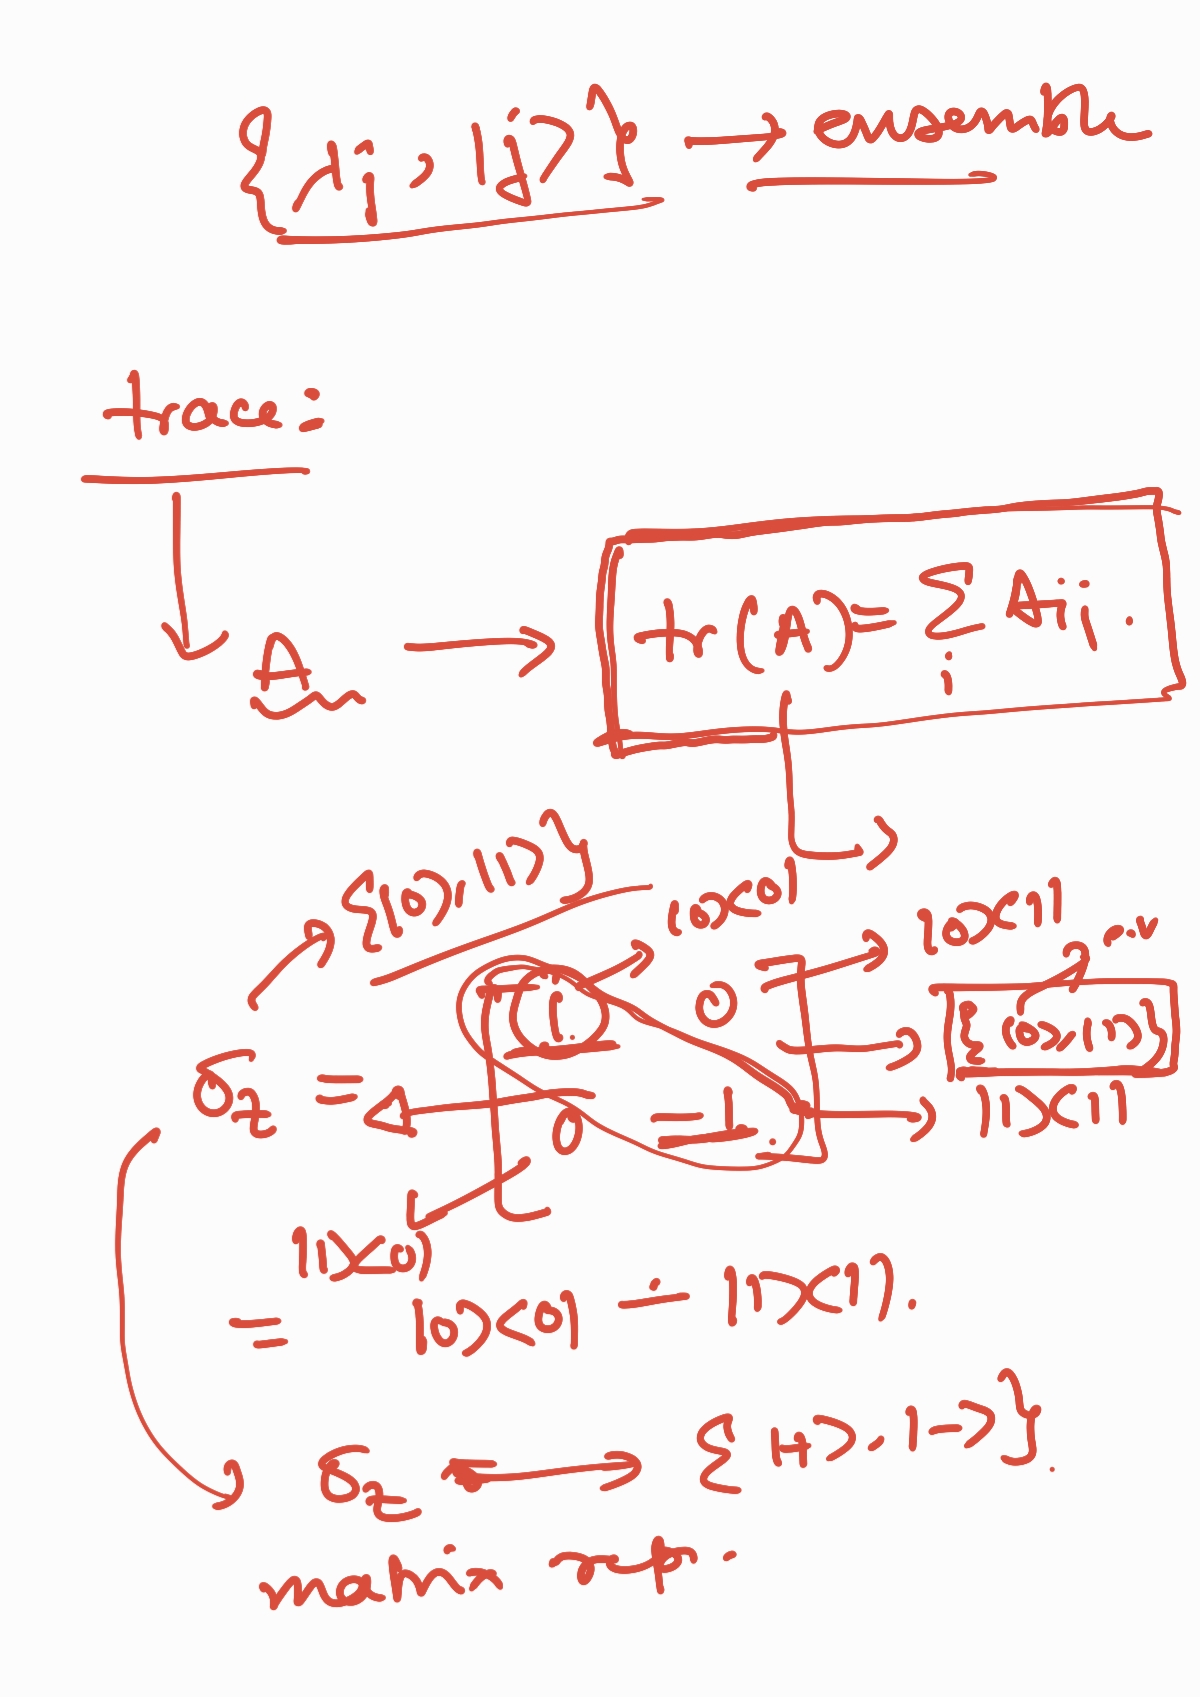 {λj, |j>} → ensemble
trace:
A → tr(A) = Σ Aii.
i
{|0>, |1>}
|0><0|
|0><1|
e.v
{|0>, |1>}
σz = [1. 0
0 -1.]
|1><1|
|1><0|
= |0><0| - |1><1|.
σz ↔ {|+>, |->}.
matrix rep.